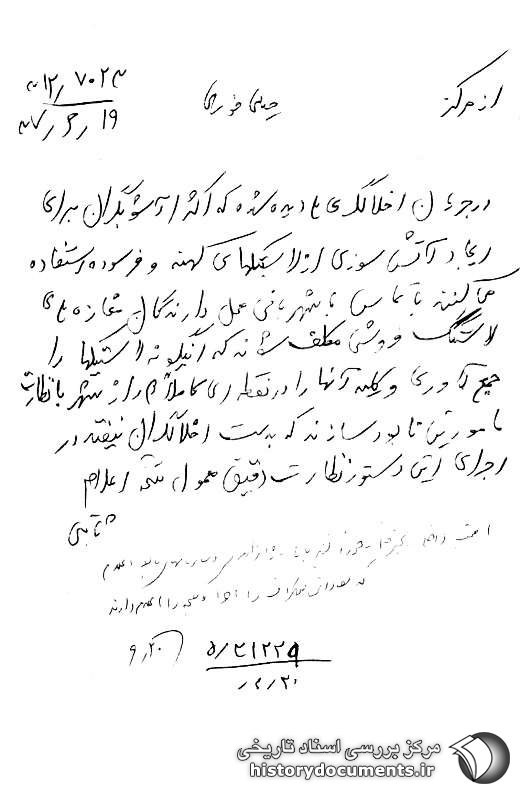 از مرکز
خیلی فوری
۳۱۲/۷۰۲۳
۱۹/۶/۳۷
در جریان اخلالگری ها دیده شده که اکثراً آشوبگران برای
ایجاد آتش سوزی از لاستیکهای کهنه و فرسوده استفاده
می کنند با تماس با شهربانی محل دارندگان مغازه های
لاستیک فروشی مکلف شوند که اینگونه لاستیکها را
جمع آوری و کلیه آنها را در نقطه ای کاملاً دور از شهر با نظارت
مامورین نابود سازند که بدست اخلالگران نیفتد در
اجرای این دستور نظارت دقیق معمول نتیجه اعلام
ثابتی
را اجرا و نتیجه را اعلام دارند
۵/۳۱۲۲۹
۶/۲۰
مرکز بررسی اسناد تاریخی
historydocuments.ir